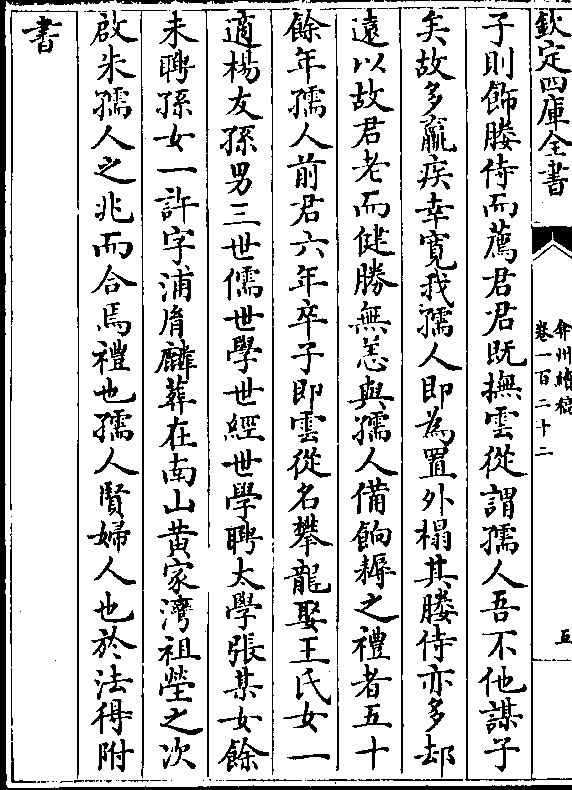 欽定四庫全書
弇州續稿
卷一百二十二
五
子則飾媵侍而薦君君既撫雲從謂孺人吾不他謀子
矣故多羸疾幸寛我孺人即為置外榻其媵侍亦多却
遠以故君老而健勝無恙與孺人備餉耨之禮者五十
餘年孺人前君六年卒子即雲從名攀龍娶王氏女一
適楊友孫男三世儒世學世經世學聘太學張某女餘
未聘孫女一許字浦胤麟葬在南山黄家灣祖塋之次
啟朱孺人之兆而合焉禮也孺人賢婦人也於法得附
書